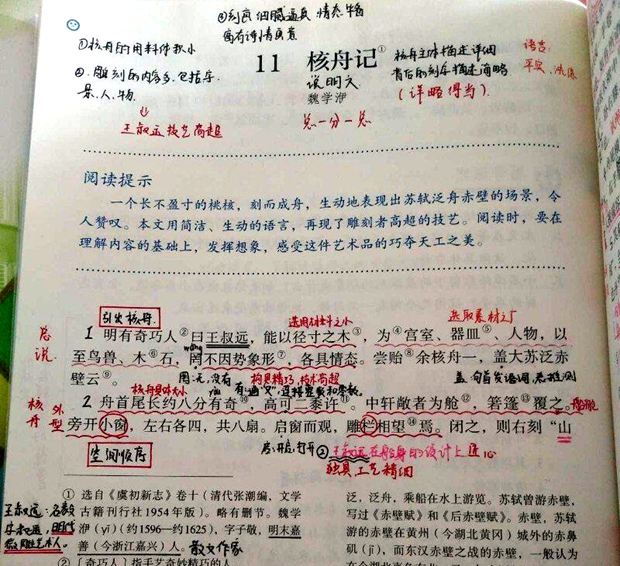 ④刻画细腻逼真 情态毕备
富有诗情画意
①核舟的用料体积小
②雕刻的内容多,包括舟、
景、人、物.
王叔远技艺高超
11 核舟记①
说明文
魏学洢
总一分一总
核舟主体描述详细
背后的刻字描述简略
(详略得当)
语言:
平实、洗练
阅读提示
一个长不盈寸的桃核,刻而成舟,生动地表现出苏轼泛舟赤壁的场景,令
人赞叹。本文用简洁、生动的语言,再现了雕刻者高超的技艺。阅读时,要在
理解内容的基础上,发挥想象,感受这件艺术品的巧夺天工之美。
引出核舟
选用材料之小
选取素材之广
总说
1 明有奇巧人②曰王叔远,能以径寸之木③,为④宫室、器皿⑤、人物,以
wǎng
至鸟兽、木⑥石,罔不因势象形⑦,各具情态。尝贻⑧余核舟一,盖大苏泛赤
壁云⑨。
罔:无,没有
构思精巧,技术高超
盖:句首发语词,表推测
核舟具体大小
有:通“又”,连接整数和零数
核舟外型
2 舟首尾长约八分有奇⑩,高可二黍许⑪。中轩敞者为舱⑫,箬篷⑬覆之。
船舱
旁开小窗,左右各四,共八扇。启窗而观,雕栏相望⑭焉。闭之,则右刻“山
空间顺序
启:开启,打开
②王叔远在船身的设计上匠心
独具 工艺精细
王叔远:名毅
字叔远,明代
微雕艺术人。
① 选自《虞初新志》卷十(清代张潮编,文学
古籍刊行社 1954 年版)。略有删节。魏学
洢(yī)(约1596—约1625),字子敬,明末嘉
善(今浙江嘉兴)人。散文作家
②〔奇巧人〕指手艺奇妙精巧的人。
泛,泛舟,乘船在水上游览。苏轼曾游赤壁,
写过《赤壁赋》和《后赤壁赋》。赤壁,苏轼
游的赤壁在黄州(今湖北黄冈)城外的赤鼻
矶(jī),而东汉赤壁之战的赤壁,一般认为